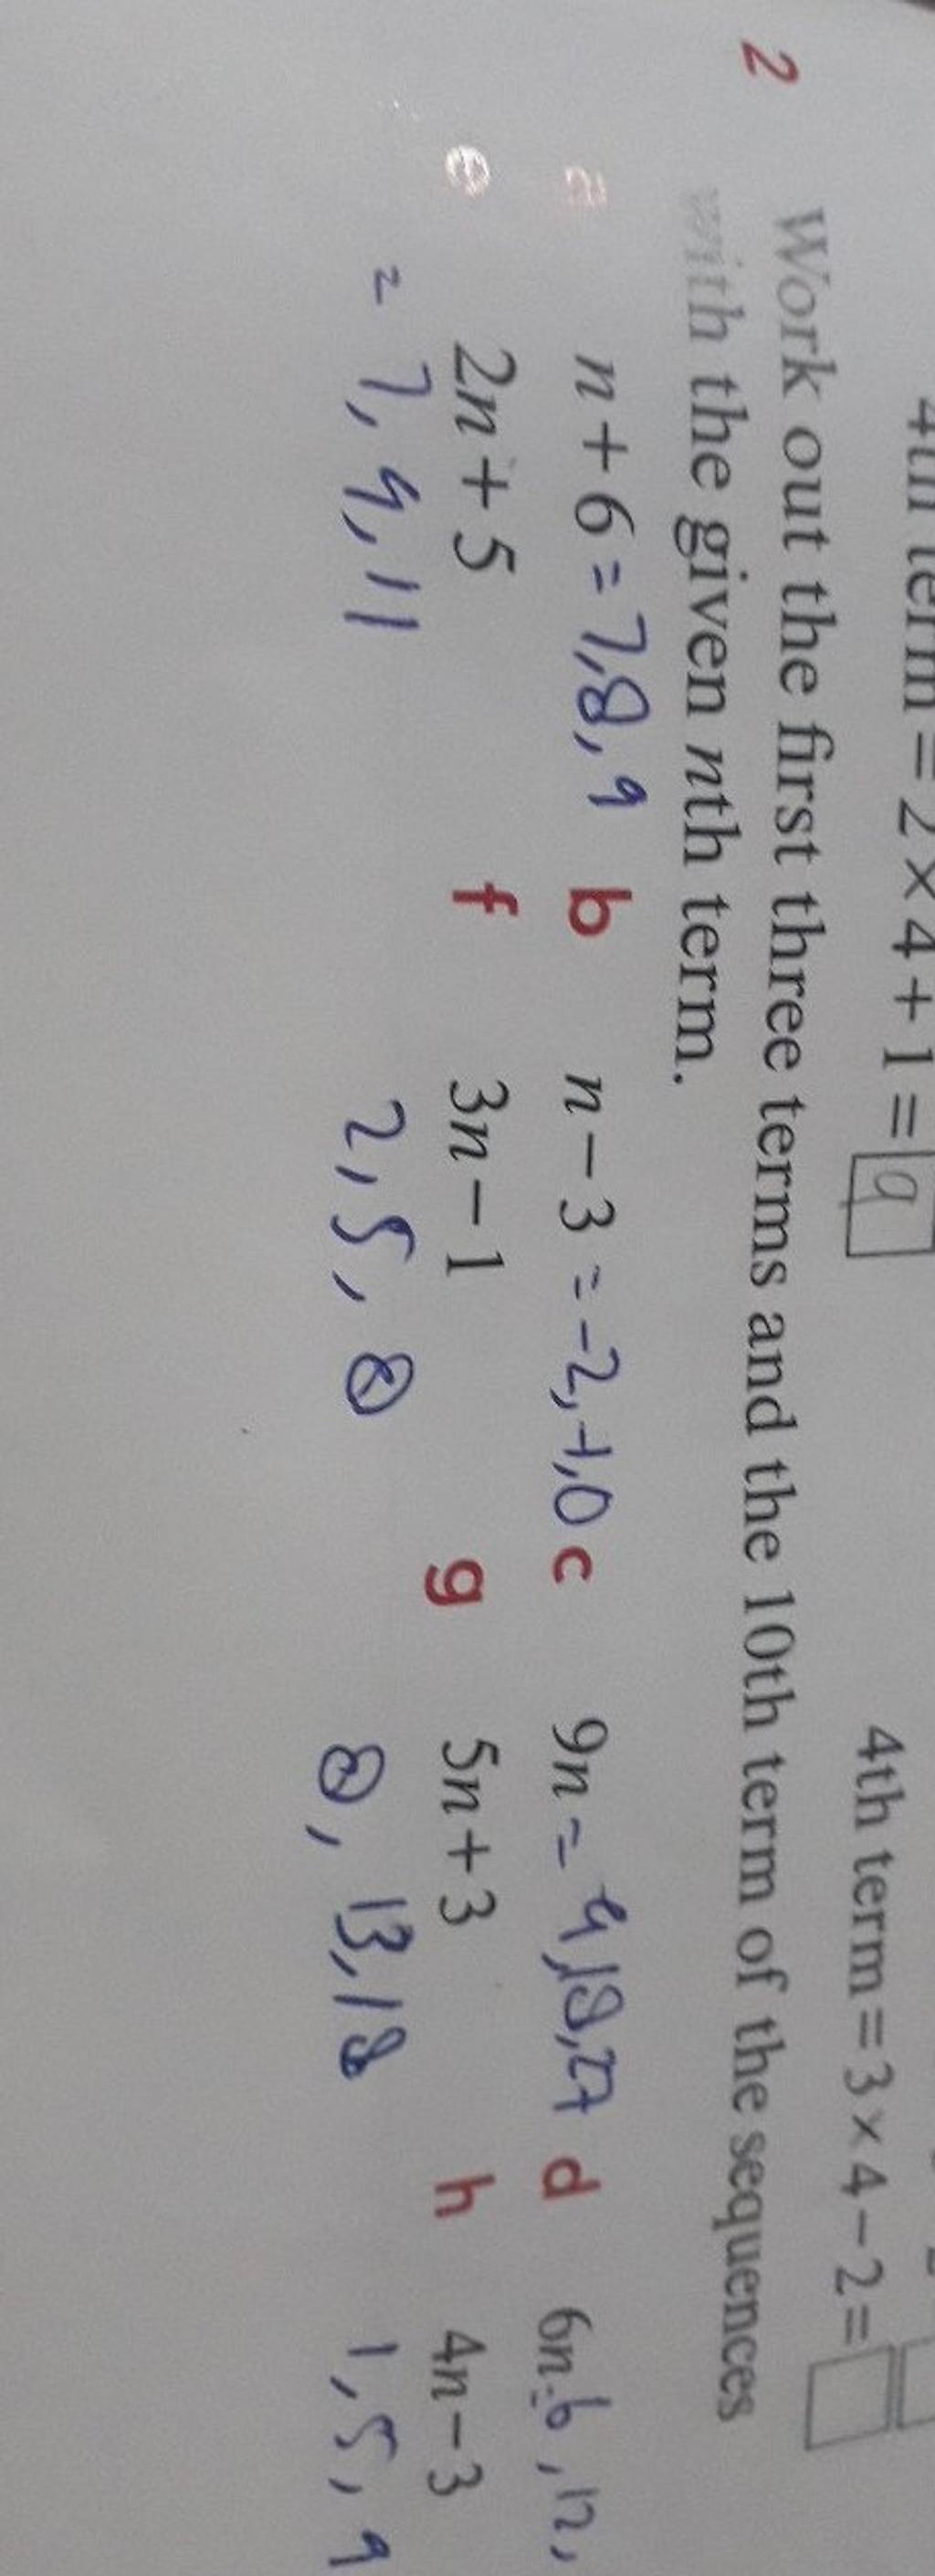 4th term = 2 × 4 + 1 = 9
4th term = 3 × 4 − 2 =
2 Work out the first three terms and the 10th term of the sequences
with the given nth term.
a n + 6 = 7, 8, 9 b n − 3 = -2, -1, 0 c 9n = 9, 18, 27 d 6n = 6, 12,
e 2n + 5 f 3n − 1 g 5n + 3 h 4n − 3
= 7, 9, 11 2, 5, 8 8, 13, 18 1, 5, 9